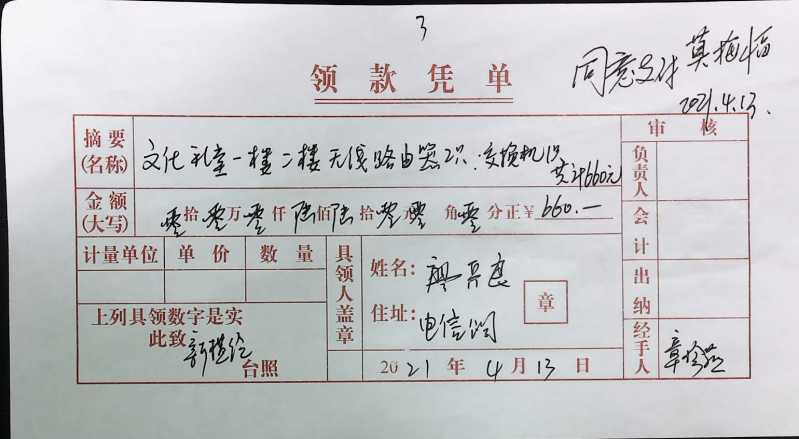 3
领款凭单
同意支付 莫梅福
2021.4.13.
摘要(名称) 文化礼堂一楼二楼无线路由器2只.交换机1只
共计660元
金额(大写) 零拾零万零仟陆佰陆拾零元零角零分正¥660.—
审核
负责人
会计
出纳
经手人
计量单位 单价 数量
具领人盖章
姓名: 廖其良
住址: 电信
章
上列具领数字是实
此致
台照
2021年4月13日